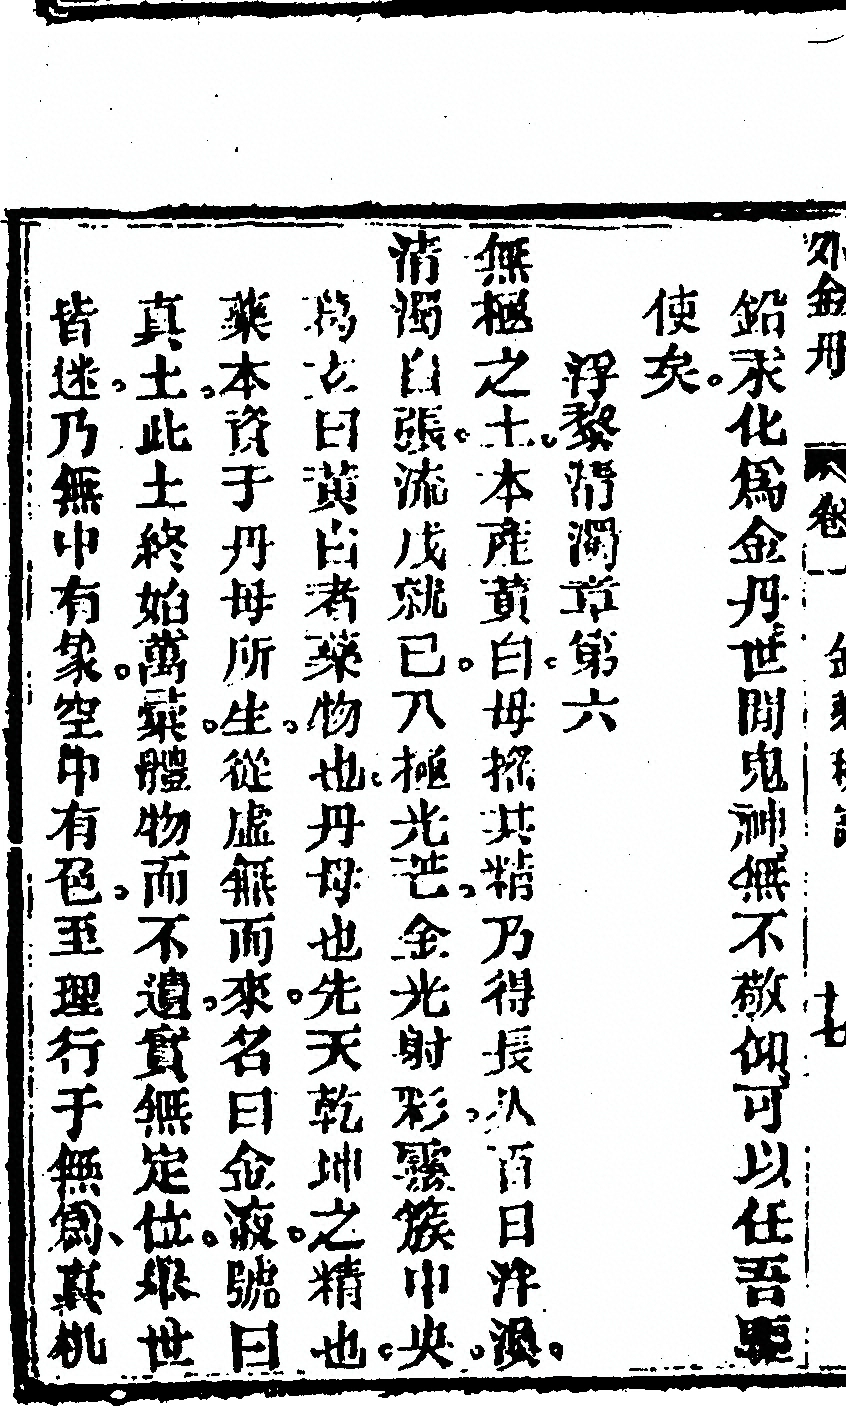 外金丹 卷一 十七
鉛汞化爲金丹世間鬼神無不敬仰可以任吾驅
使矣。
浮黎清濁章第六
無極之土本產黃白母採其精乃得長久百日渾
清濁自張流戊就已八極光芒金光射彩靄簇中央
葛玄曰黃白者藥物也丹母也先天乾坤之精也
藥本資于丹母所生從虛無而來名曰金液號曰
真土此土終始萬彙體物而不遺實無定位舉世
皆迷乃無中有象空中有色至理行于無爲真机